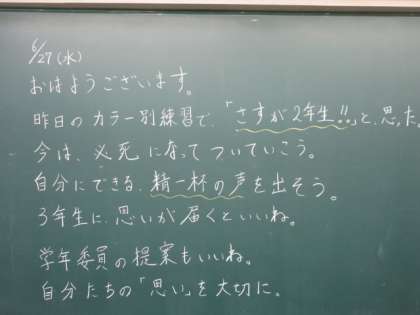 6/27(水)
おはようございます。
昨日のカラー別練習で、「さすが2年生!!」と、思った。
今は、必死になってついていこう。
自分にできる、精一杯の声を出そう。
3年生に、思いが届くといいね。
学年委員の提案もいいね。
自分たちの「思い」を大切に。